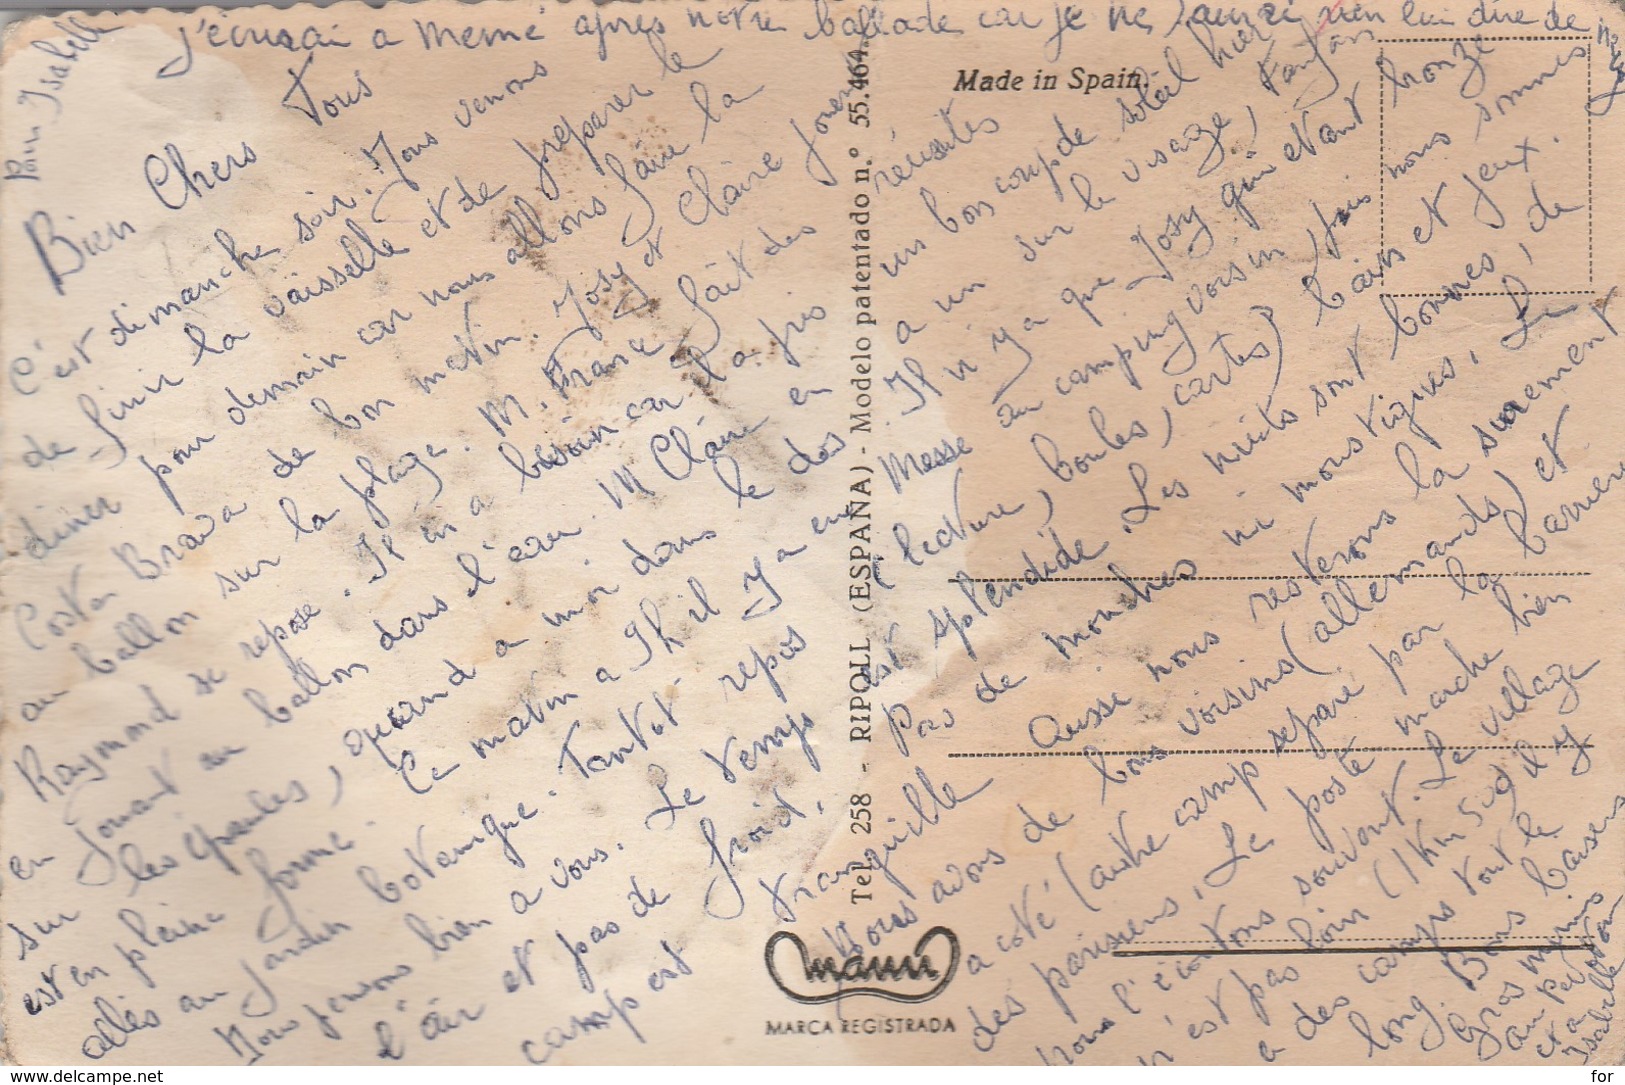 Pour Isabelle
j'écrirai a Mémé après notre ballade car je ne saurai rien lui dire de
Bien Chers Tous
C'est dimanche soir. Nous venons
de finir la vaisselle et de préparer le
diner pour demain car nous allons faire la
Costa Brava de bon matin. Josy et Claire jouent
au ballon sur la plage. M. France fait des
Raymond se repose. Il en a besoin car l'a pris
en jouant au ballon dans l'eau. M Claire en
sur les épaules, quand a moi dans le dos
est en pleine forme. Ce matin a 9h il y a eu
allés au jardin botanique. Tantôt repos
Nous pensons bien a vous. Le temps
l'air et pas de froid.
camp est tranquille
réussites
un bon coup de soleil hier
a un sur le visage,
Il n'y a que Josy qui étant bronzé
Messe au camping voisin, puis nous sommes
(lecture, boules, cartes) bains et jeux.
est splendide. Les nuits sont bonnes, de
Pas de mouches ni moustiques. Le
Aussi nous resterons la surement
Nous avons de bons voisins (allemands) et
a coté (autre camp séparé par la barrière
des parisiens. Le poste marche bien
nous l'écoutons souvent. Le village
n'est pas loin (1 km 500) il y
a des camps tout le
long. Bons baisers
Gros mimis
au petit
et a
Isabelle
Made in Spain.
Tel. 258 - RIPOLL (ESPAÑA) - Modelo patentado n.º 55.464
manú
MARCA REGISTRADA
https://www.delcampe.net
for